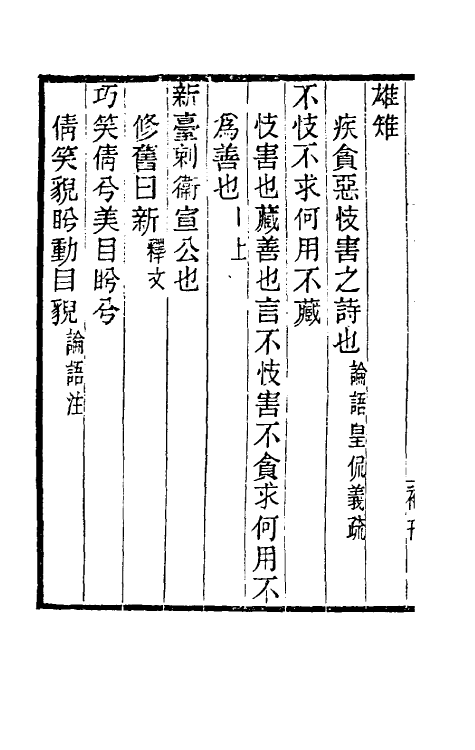 雄雉
疾貪惡忮害之詩也論語皇侃義疏
不忮不求何用不藏
忮害也藏善也言不忮害不貪求何用不
為善也｜上
新臺刺衞宣公也
修舊曰新釋文
巧笑倩兮美目盻兮
倩笑貎盻動目貎論語注